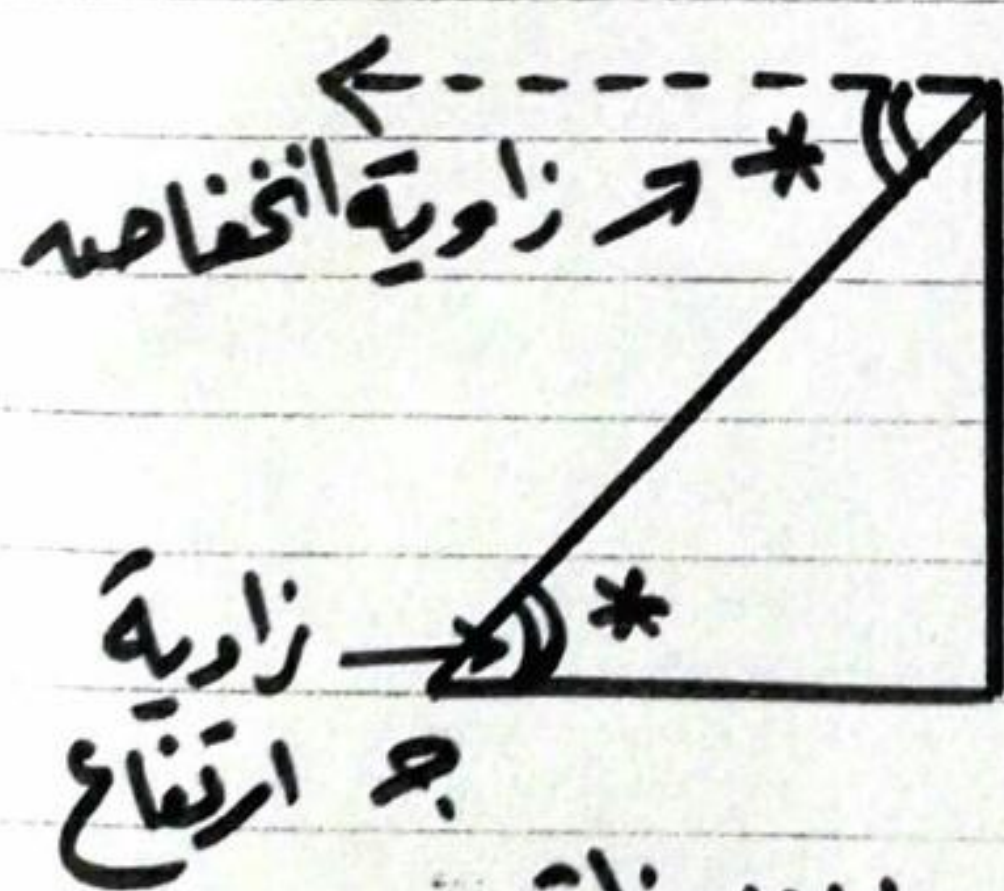 * زاوية انخفاض
* زاوية
جـ ارتفاع